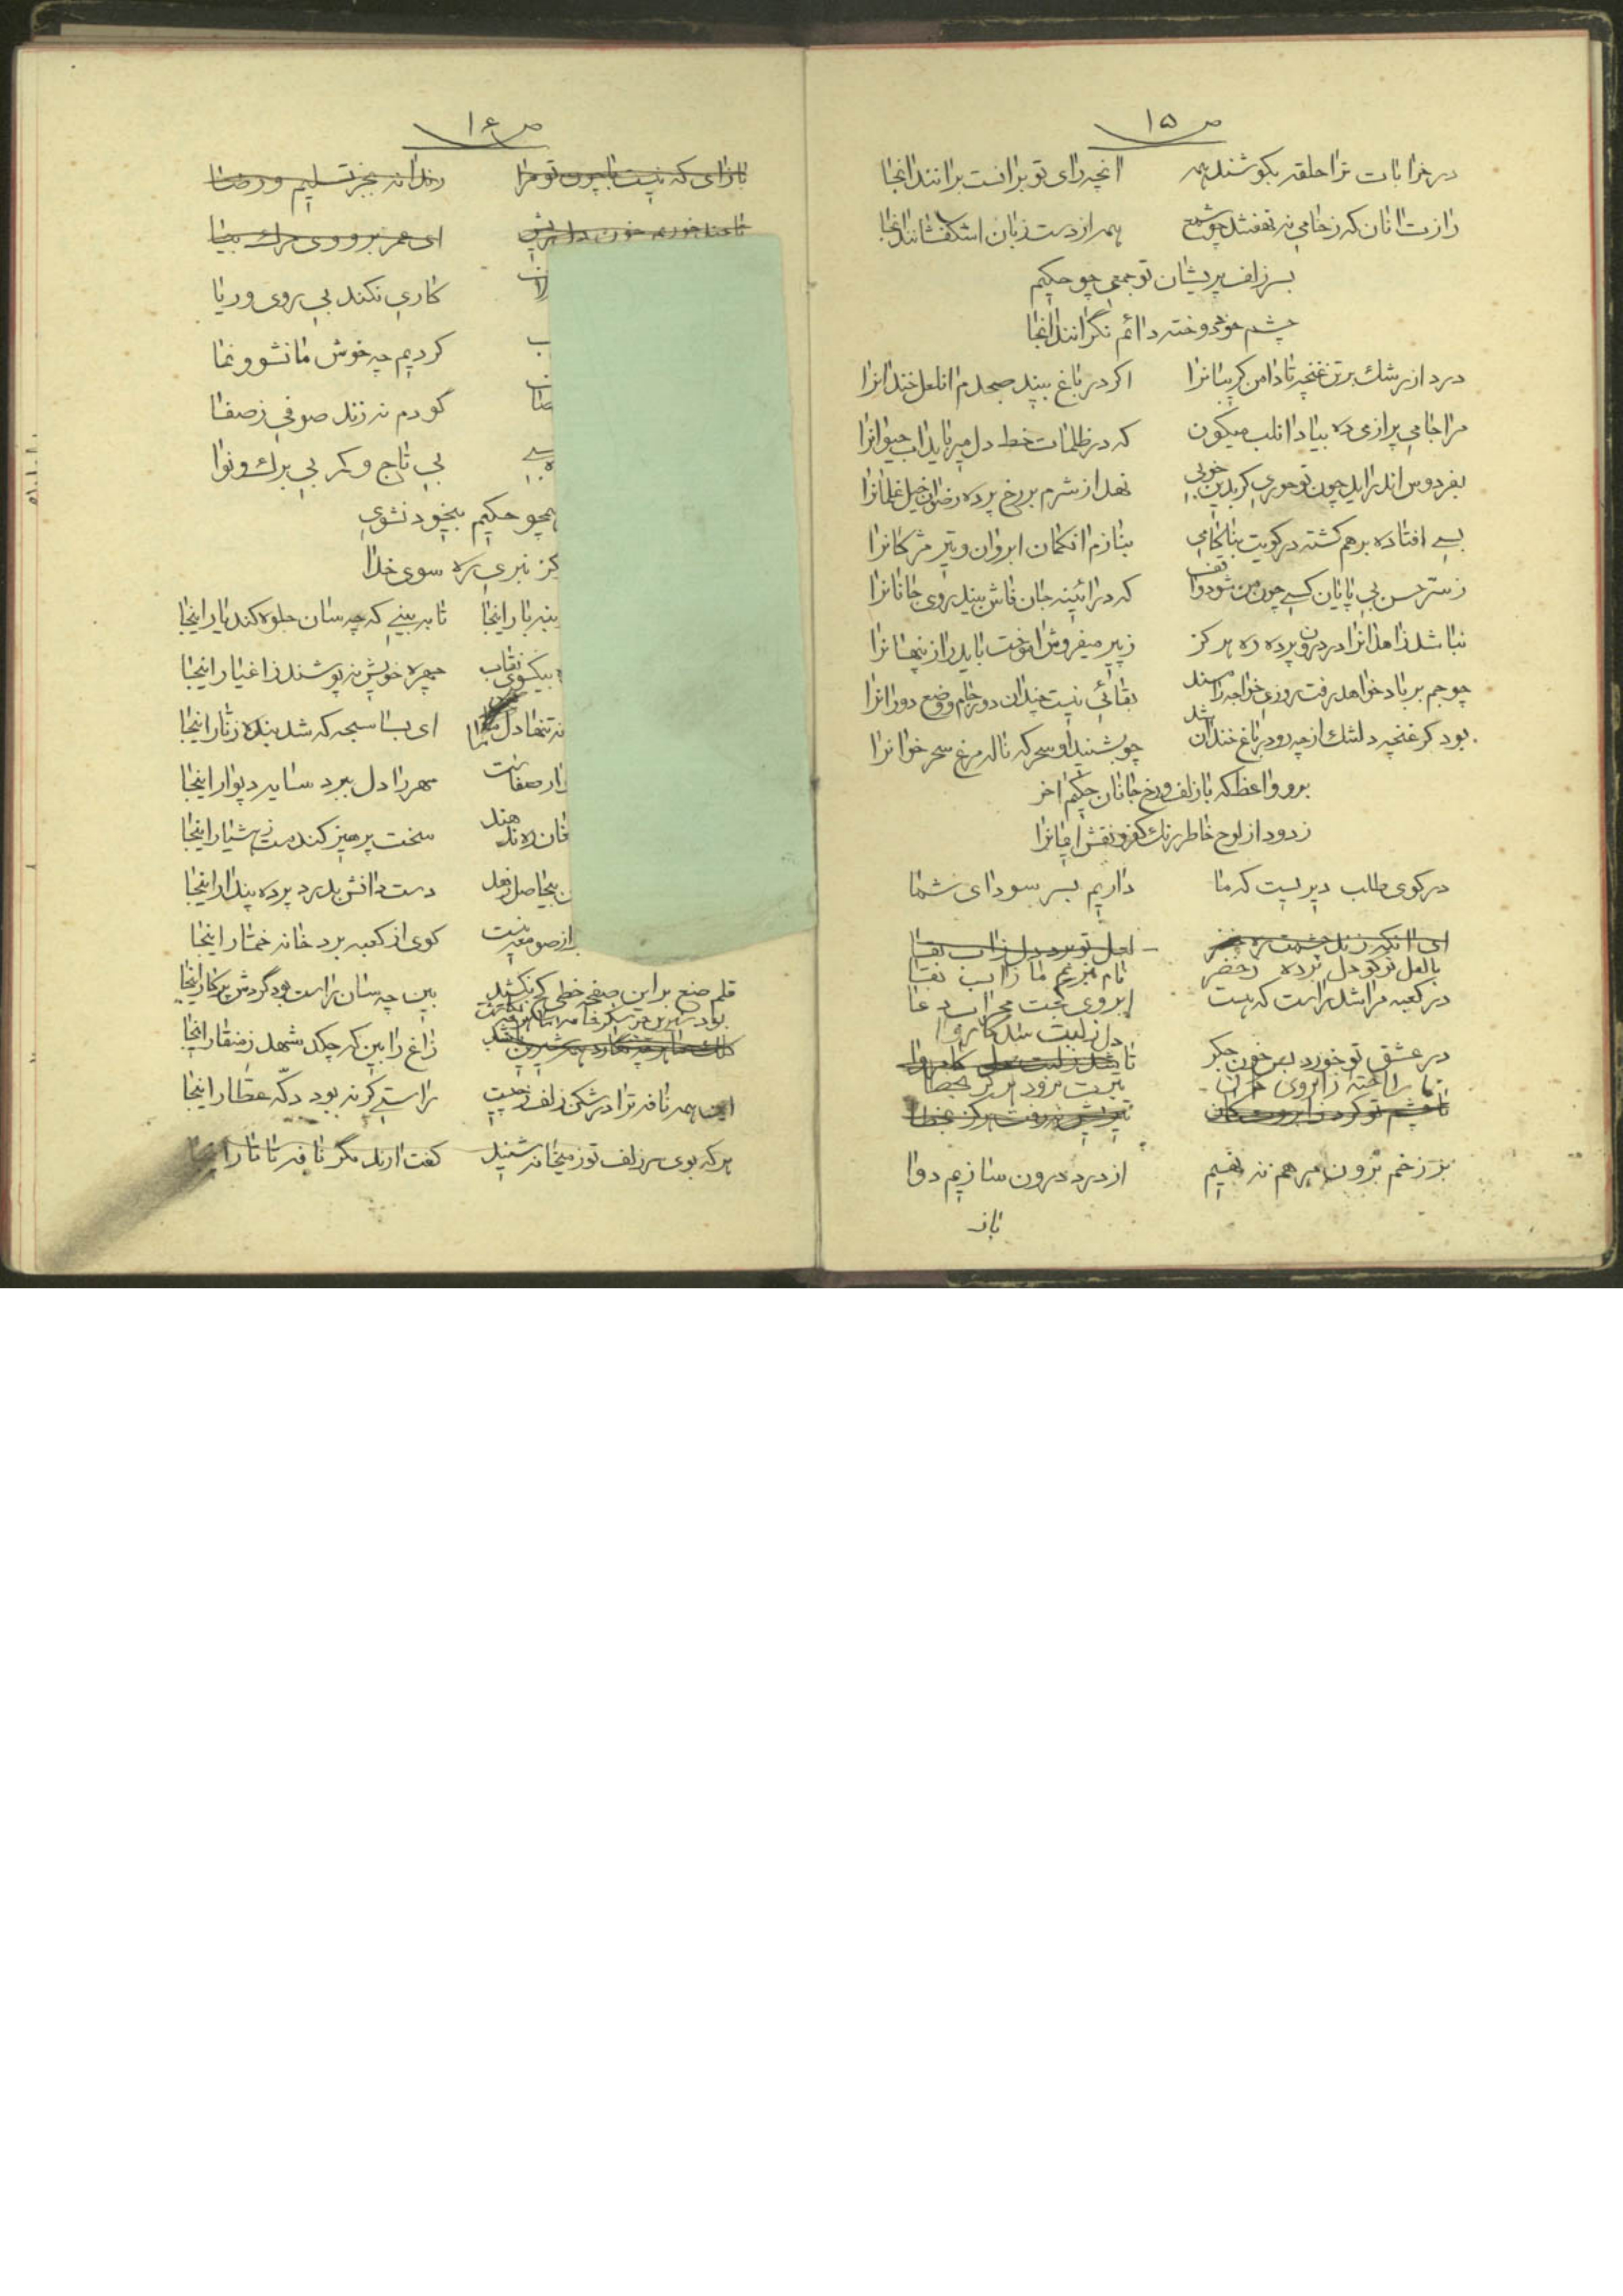 ص ۱۵
در خرابات ترا حلقه بکوشند همه انچه رای تو بر آنست برانند انجا
رازت آنان که ز خامی نه نهفتند چو شمع همه از دست زبان اشک فشانند انجا
بسر زلف پریشان تو جمعی چو حکیم
چشم خود دوخته دائم نگرانند انجا
درد از رشک بر تن غنچه تا دامن کریبانرا اکر در باغ بیند صبحدم ان لعل خندانرا
مرا جامی پر از می ده بیاد ان لب میکون که در ظلمات خط دل میرباید اب حیوانرا
بفردوس اندر اید چون تو حوری کر بدین خوبی نهد از شرم بر رخ پرده رضوان خیل غلمانرا
بسی افتاده بر هم کشته در کویت بناکامی بنازم ان کمان ابروان و تیر مژکانرا
ز ستر حسن بی پایان کسی چون من شود واقف که در ائینه جان فاش بیند روی جانانرا
نباشد زاهدانرا در درون پرده ره هرکز ز پیر میفروش اموخت باید راز پنهانرا
چو جم بر باد خواهد رفت روزی خواجه را مسند بقائی نیست چندان دور جام و وضع دورانرا
بود کر غنچه دلتنک از چه رو در باغ خندان شد چو بشنید او سحرکه ناله مرغ سحرخوانرا
برو واعظ که باز لف و رخ جانان حکیم اخر
زدود از لوح خاطر رنک کفر و نقش ایمانرا
در کوی طلب دیریست که ما داریم بسر سودای شما
با لعل تو کو دل برده ز خضر نام نبریم ما ز اب بقا
در کعبه مرا شد راست که هست ابروی کجت محراب دعا
دل از لبت نشد کامروا
در عشق تو خورد بس خون جکر تا
تا راخته ز ابروی
تیرت نرود هرکز بخطا
بر زخم برون مرهم نه نهیم از درد درون سازیم دوا
باز
ص ۱۶
بازای که نیست با چون تو مرا رندانه بجز تسلیم و رضا
تا چند خوریم خون دل ای عمر برو وی مرک بیا
کاری نکند بی روی و ریا
کردیم چه خوش ما نشو و نما
کو دم نه زند صوفی ز صفا
بی تاج و کمر بی برک و نوا
همچو حکیم بیخود نشوی
کز نبری ره سوی خدا
تا به بینی که چه سان جلوه کند یار اینجا
بیکسوی نقاب چهره خویش نه پوشند ز اغیار اینجا
نه تنها دل ای بسا سبحه که شد بنده زنار اینجا
مهر را دل ببرد سایه دیوار اینجا
سخت پرهیز کند مست ز هشیار اینجا
دست دانش بدرد پرده پندار اینجا
از صومعه نیست کوی از کعبه برد خانه خمار اینجا
قلم صنع بر این صفحه خطی کج نکشید بین چه سان راست بود کردش پرکار اینجا
زاغ را بین که چکد شهد ز منقار اینجا
این همه نافه ترا در شکن زلف ز چیست راستی کر نه بود دکّه عطار اینجا
هرکه بوی سر زلف تو ز میخانه شنید کفت ارند مکر نافه تاتار اینجا